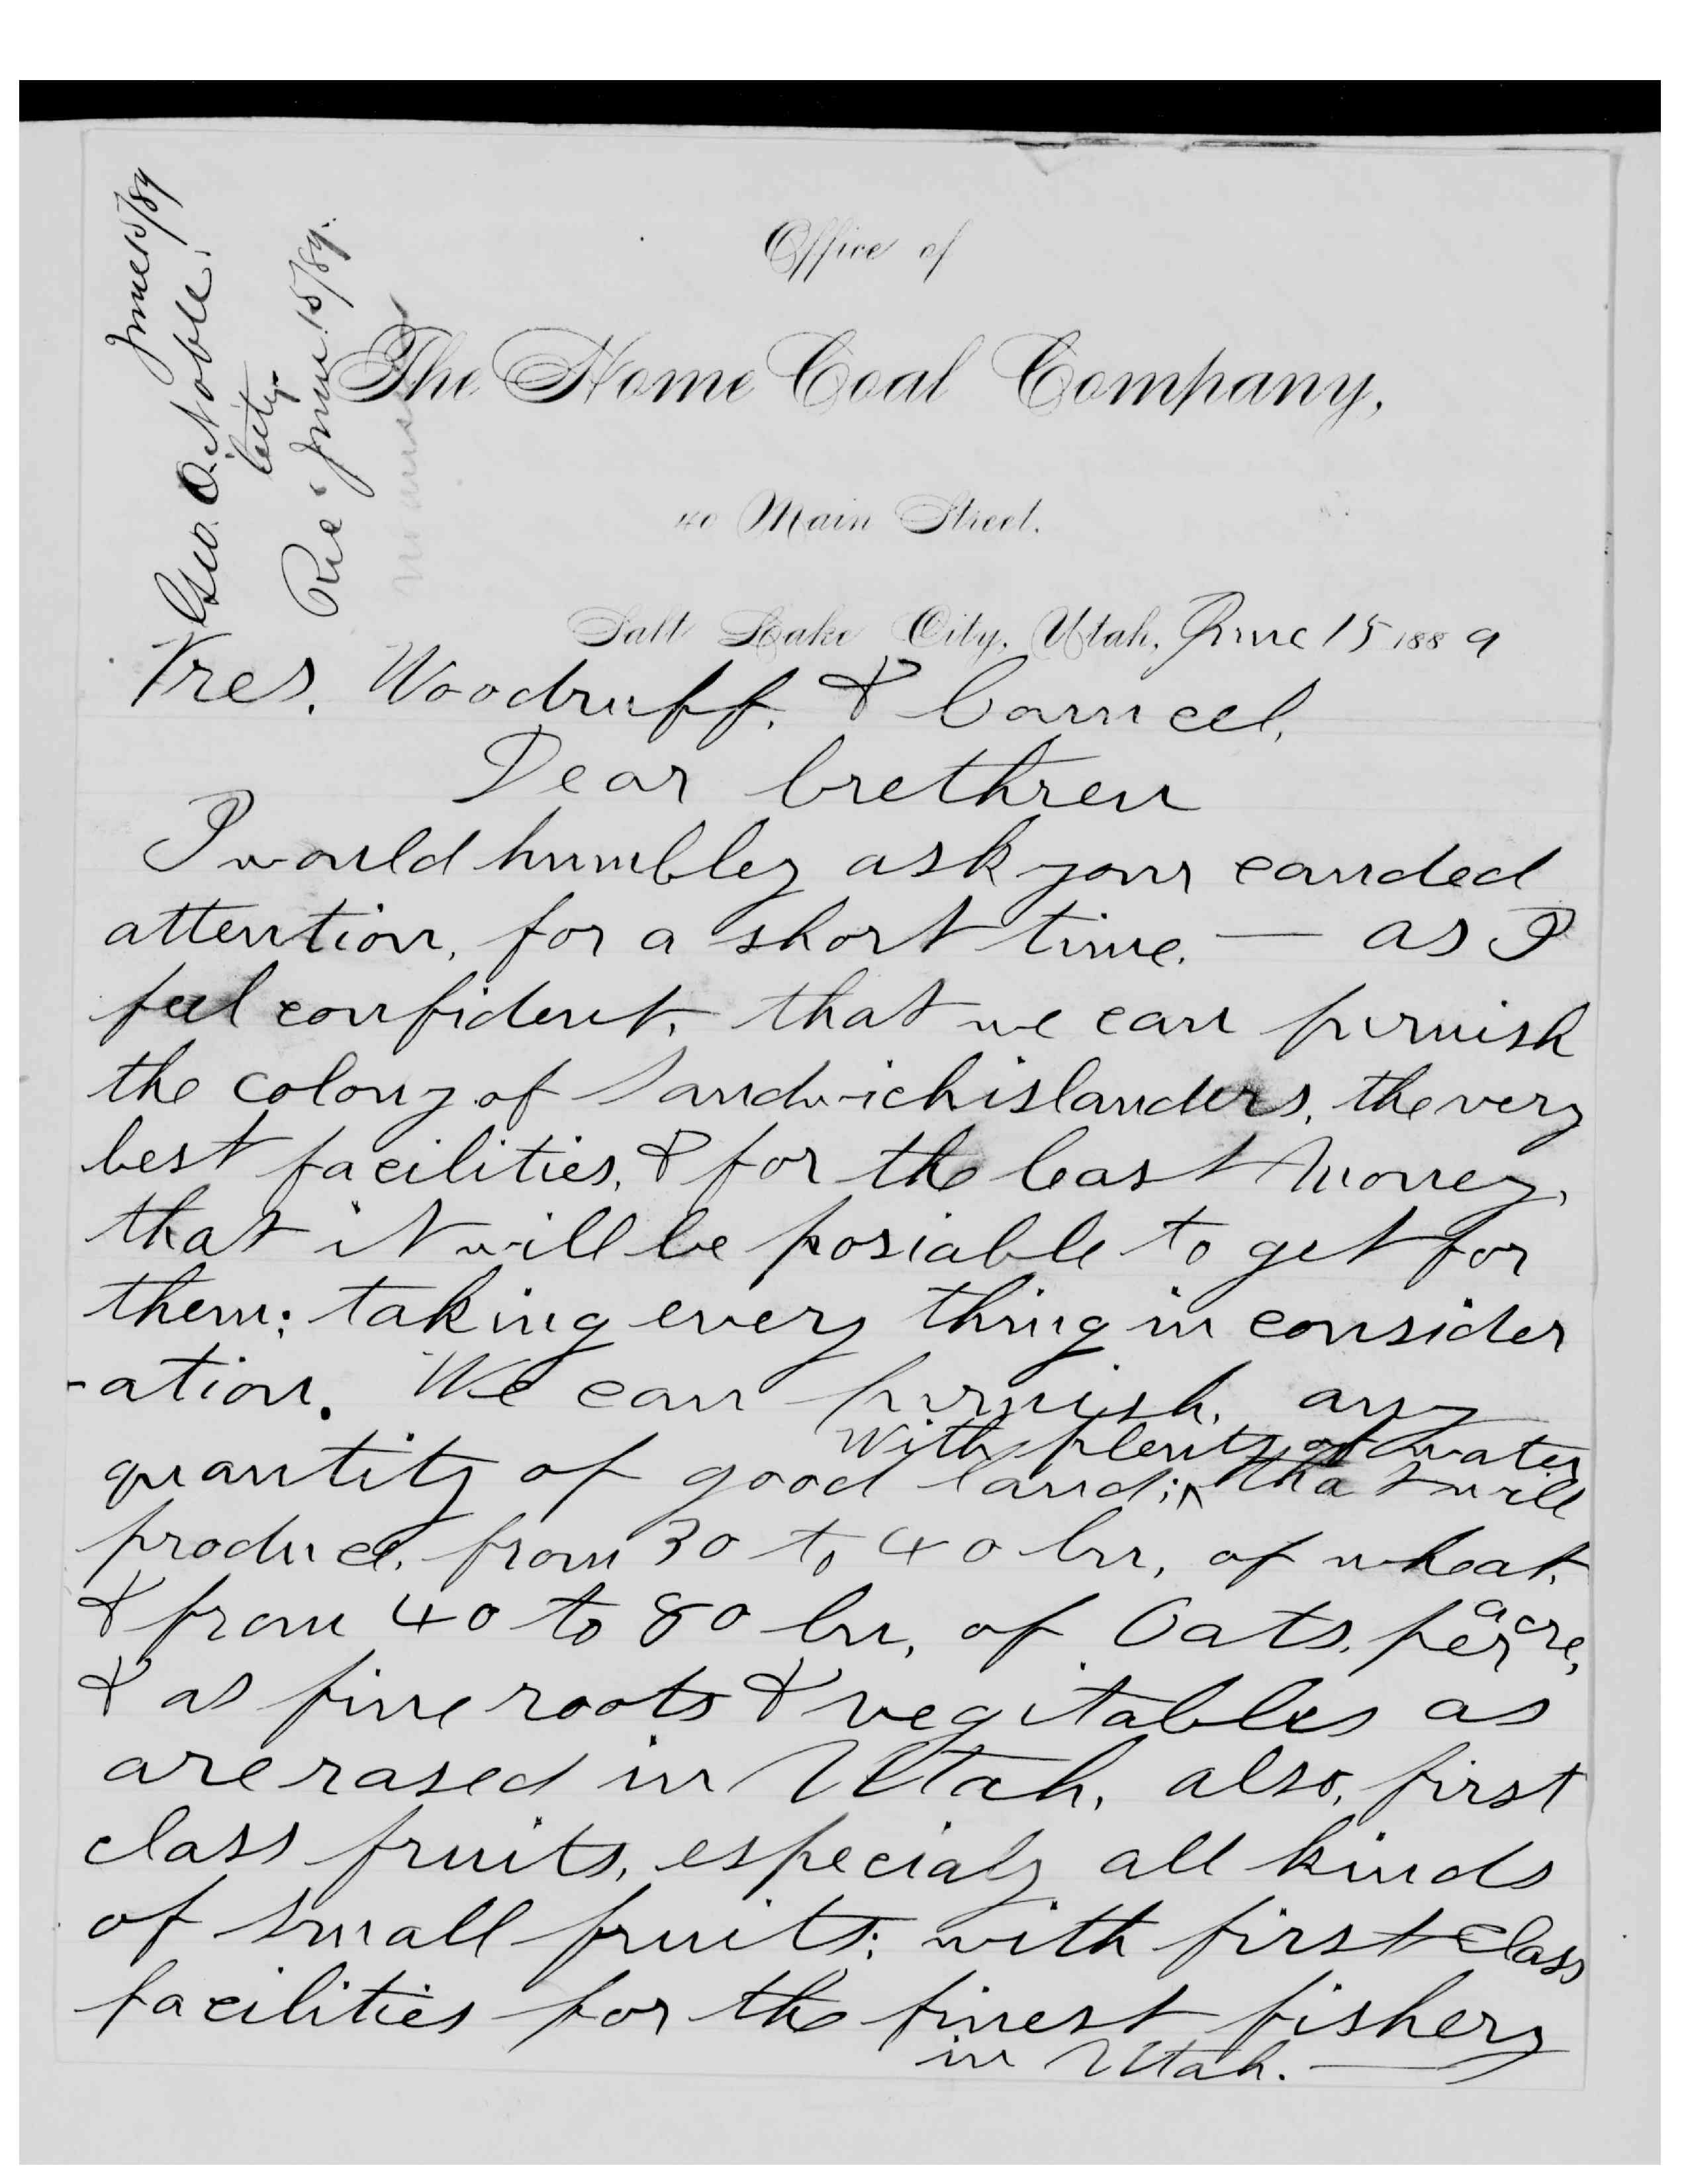 June 15/89
Geo. O. Noble.
City.
Rec. June 15/89.
Office of
The Home Coal Company,
40 Main Street.
Salt Lake City, Utah, June 15 1889
Pres. Woodruff. & Councel.
Dear brethren
I would humbley ask your canded
attention, for a short time. — as I
feel confident, that we can furnish
the colony of Sandwichislanders, the very
best facilities, & for the least money,
that it will be posiable to get for
them; taking every thing in consider
-ation. We can furnish, any
with plenty of water
quantity of good land; ^ that will
produce, from 30 to 40 bu, of wheat,
& from 40 to 80 bu, of Oats. per acre,
& as fine roots & vegitables as
are rased in Utah, also, first
class fruits, especialy all kinds
of small fruits; with first class
facilities for the finest fishery
in Utah. —